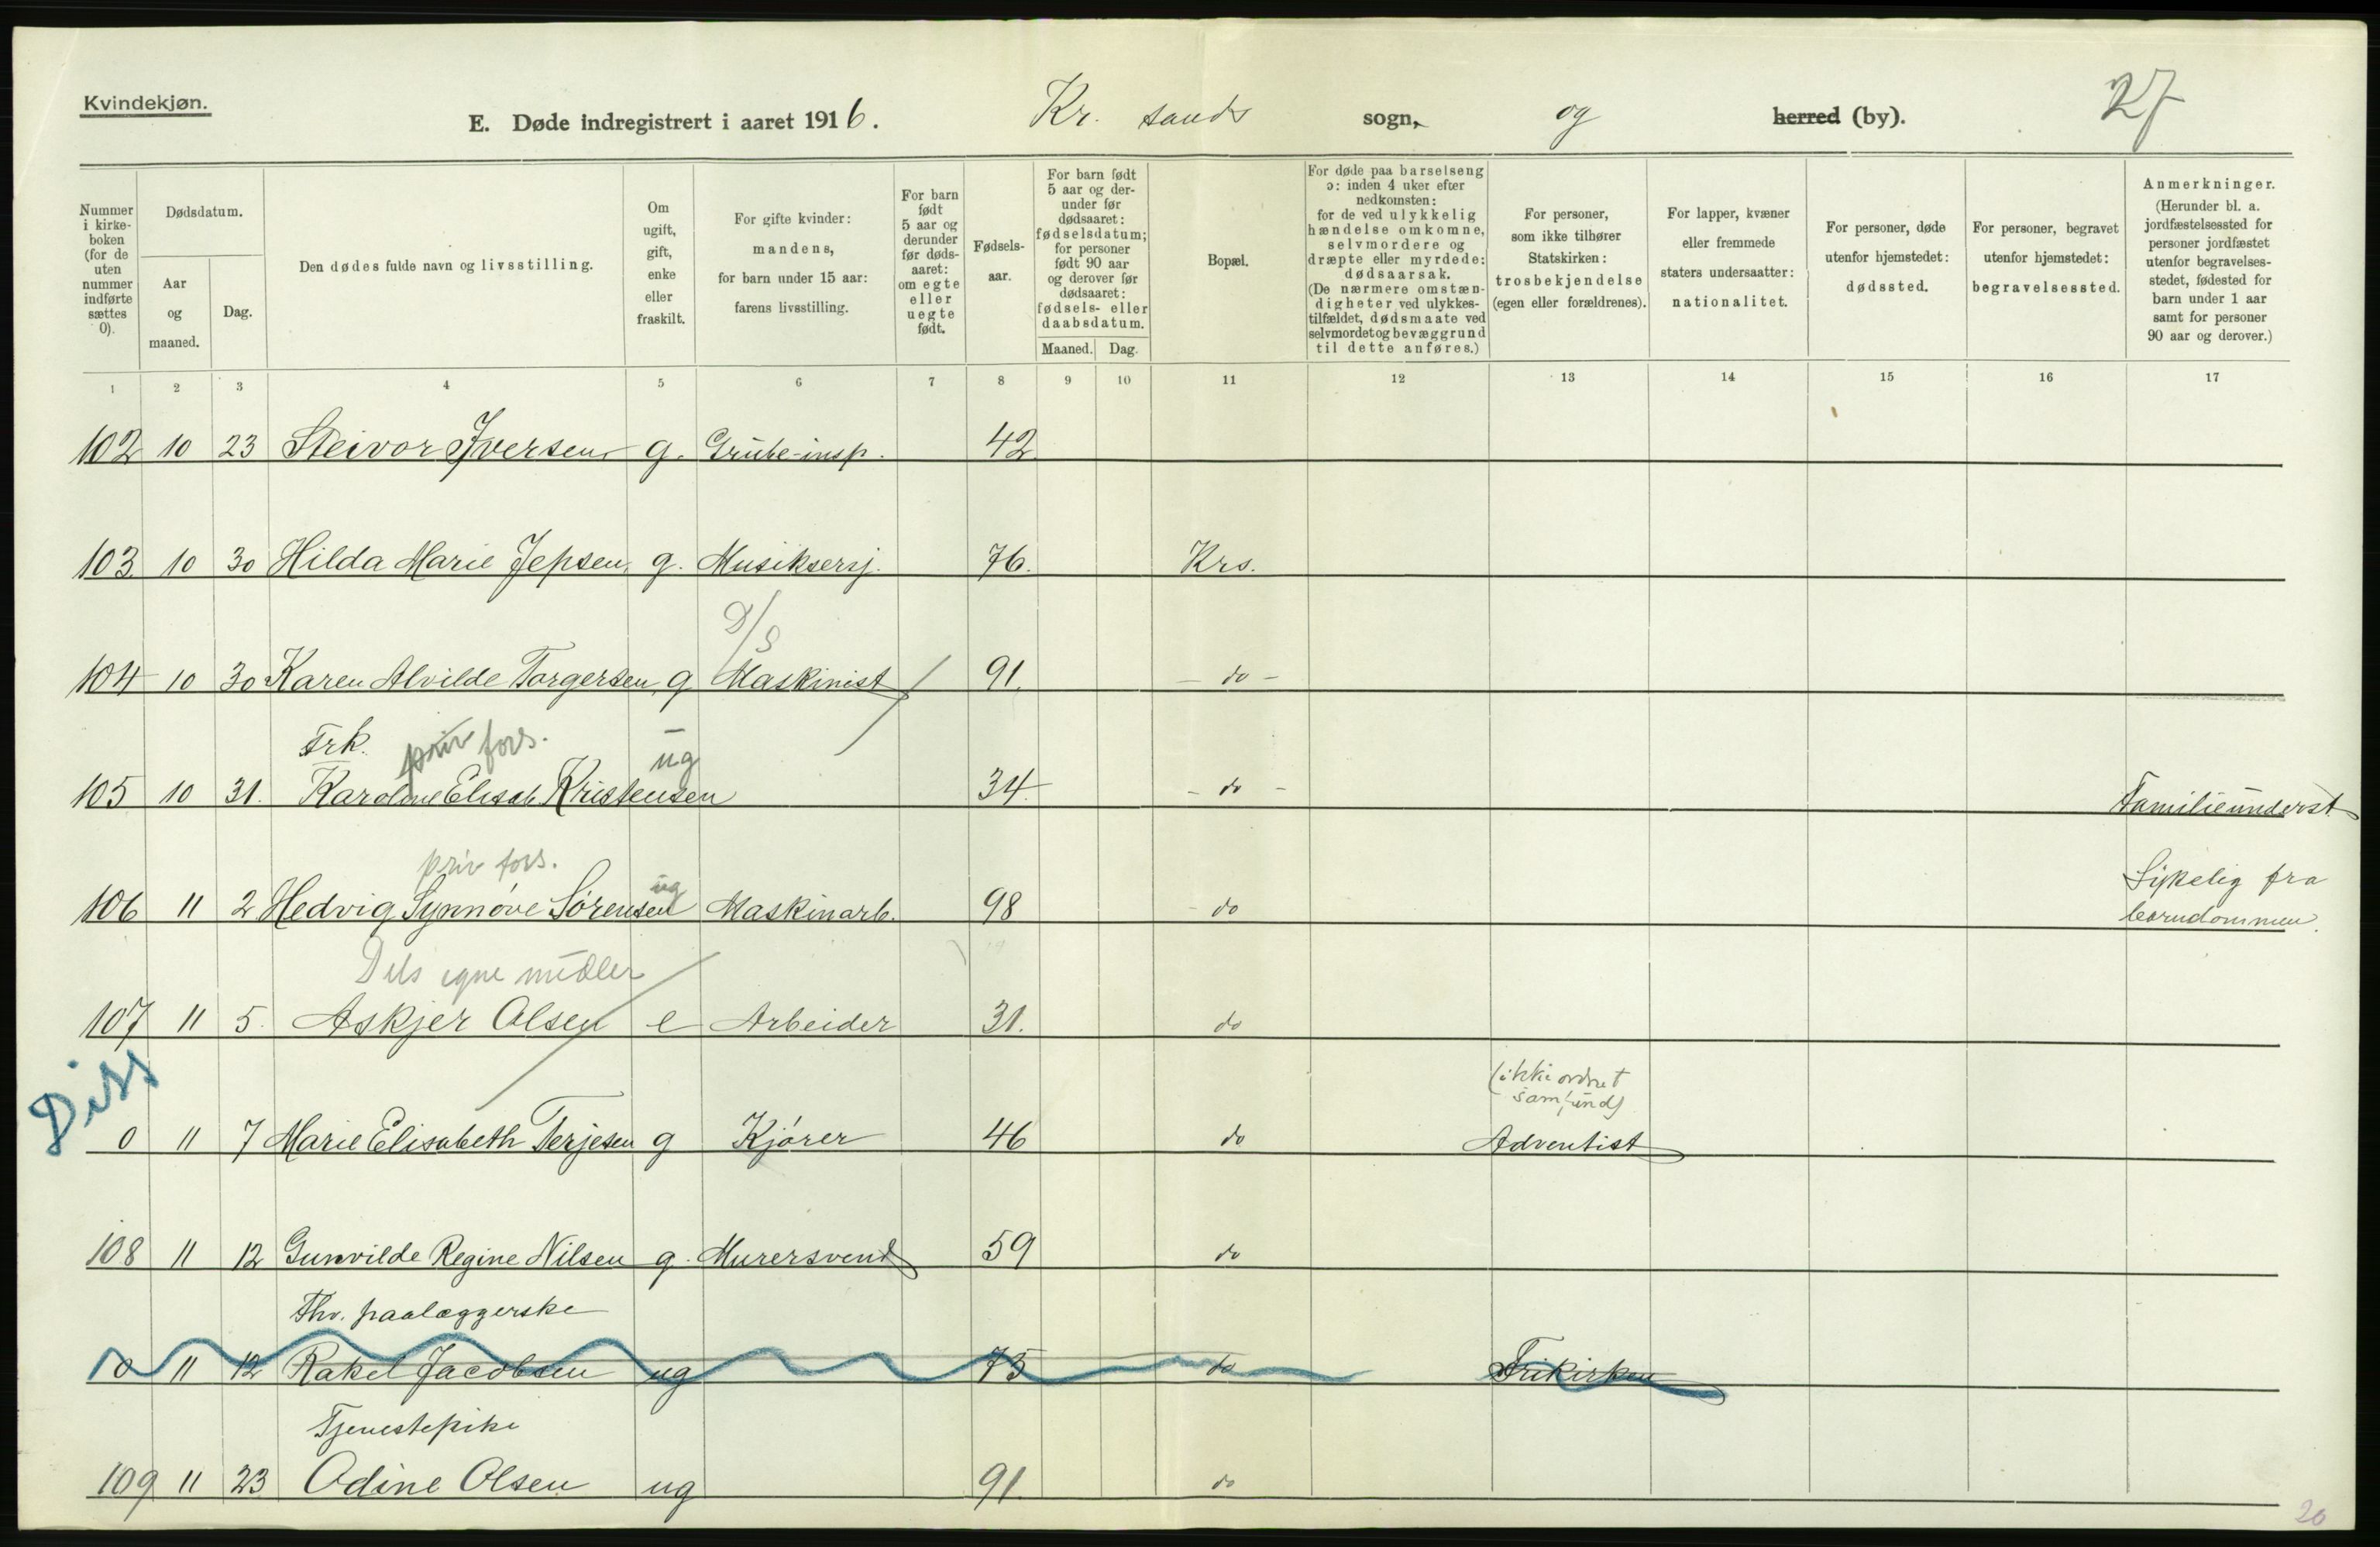 Kvindekjøn.
E. Døde indregistrert i aaret 1916. Kr. sands sogn, og herred (by). 27
Nummer i kirkeboken (for de uten nummer indførte sættes 0).
Dødsdatum.
Aar og maaned.
Dag.
Den dødes fulde navn og livsstilling.
Om ugift, gift, enke eller fraskilt.
For gifte kvinder: mandens, for barn under 15 aar: farens livsstilling.
For barn født 5 aar og derunder før dødsaaret: om egte eller uegte født.
Fødselsaar.
For barn født 5 aar og derunder før dødsaaret: fødselsdatum; for personer født 90 aar og derover før dødsaaret: fødsels- eller daabsdatum.
Maaned. Dag.
Bopæl.
For døde paa barselseng ɔ: inden 4 uker efter nedkomsten: for de ved ulykkelig hændelse omkomne, selvmordere og dræpte eller myrdede: dødsaarsak. (De nærmere omstændigheter ved ulykkestilfældet, dødsmaate ved selvmordet og bevæggrund til dette anføres.)
For personer, som ikke tilhører Statskirken: trosbekjendelse (egen eller forældrenes).
For lapper, kvæner eller fremmede staters undersaatter: nationalitet.
For personer, døde utenfor hjemstedet: dødssted.
For personer, begravet utenfor hjemstedet: begravelsessted.
Anmerkninger. (Herunder bl. a. jordfæstelsessted for personer jordfæstet utenfor begravelsesstedet, fødested for barn under 1 aar samt for personer 90 aar og derover.)
1 2 3 4 5 6 7 8 9 10 11 12 13 14 15 16 17
102 10 23 Steivor Iversen g. Grube-insp. 42
103 10 30 Hilda Marie Jepsen g. Musikersj. 76. Krs.
D/S
104 10 30 Karen Alvilde Torgersen g Maskinist 91. - do -
Frk. priv fors. ug
105 10 31. Karoline Elisab Kristensen 34. - do - Familieunderst.
priv fors. ug Sykelig fra
106 11 2 Hedvig Synnøve Sørensen Maskinarb. 98 - do barndommen.
Dels egne midler
107 11 5. Askjer Olsen e Arbeider 31. do
Diss (ikke ordnet
samfund)
0 11 7 Marie Elisabeth Terjesen g Kjører 46 do Adventist
108 11 12 Gunvilde Regine Nilsen g. Murersvend 59 do
Fhv. paalæggerske
0 11 12 Rakel Jacobsen ug 75 do Frikirken
Tjenestepike
109 11 23 Odine Olsen ug 91. do
20